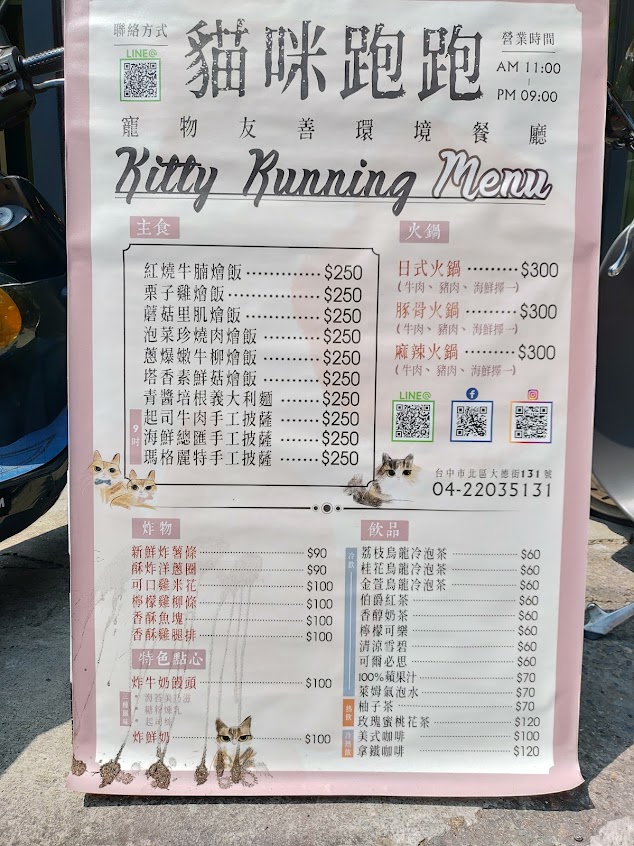 聯絡方式
LINE@
貓咪跑跑
營業時間
AM 11:00
PM 09:00
寵物友善環境餐廳
Kitty Running Menu
主食
紅燒牛腩燴飯 $250
栗子雞燴飯 $250
蘑菇里肌燴飯 $250
泡菜珍燒肉燴飯 $250
蔥爆嫩牛柳燴飯 $250
塔香素鮮菇燴飯 $250
青醬培根義大利麵 $250
9吋
起司牛肉手工披薩 $250
海鮮總匯手工披薩 $250
瑪格麗特手工披薩 $250
火鍋
日式火鍋 $300
(牛肉、豬肉、海鮮擇一)
豚骨火鍋 $300
(牛肉、豬肉、海鮮擇一)
麻辣火鍋 $300
(牛肉、豬肉、海鮮擇一)
LINE@
台中市北區大德街131號
04-22035131
炸物
新鮮炸薯條 $90
酥炸洋蔥圈 $90
可口雞米花 $100
檸檬雞柳條 $100
香酥魚塊 $100
香酥雞腿排 $100
特色點心
炸牛奶饅頭 $100
*海苔美乃滋
*糖粉煉乳
*起司粉
炸鮮奶 $100
飲品
冷飲
荔枝烏龍冷泡茶 $60
桂花烏龍冷泡茶 $60
金萱烏龍冷泡茶 $60
伯爵紅茶 $60
香醇奶茶 $60
檸檬可樂 $60
清涼雪碧 $60
可爾必思 $60
100%蘋果汁 $70
萊姆氣泡水 $70
熱飲
柚子茶 $70
玫瑰蜜桃花茶 $120
冷熱飲
美式咖啡 $100
拿鐵咖啡 $120